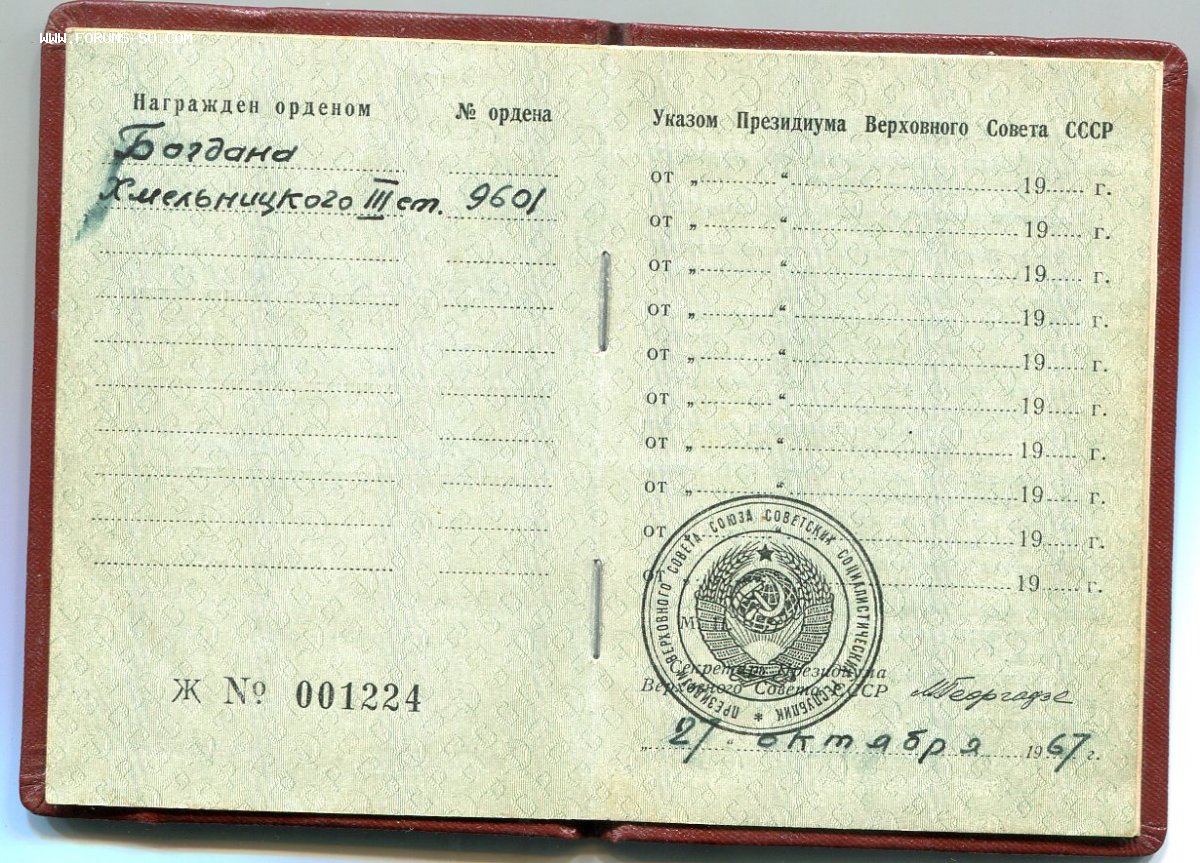 WWW.FORUMS-SU.COM
Награжден орденом
№ ордена
Богдана
Хмельницкого III ст. 9601
Ж № 001224
Указом Президиума Верховного Совета СССР
от „ “ 19 г.
от „ “ 19 г.
от „ “ 19 г.
от „ “ 19 г.
от „ “ 19 г.
от „ “ 19 г.
от „ “ 19 г.
от „ “ 19 г.
от „ “ 19 г.
от „ “ 19 г.
ПРЕЗИДИУМ ВЕРХОВНОГО СОВЕТА СОЮЗА СОВЕТСКИХ СОЦИАЛИСТИЧЕСКИХ РЕСПУБЛИК *
М. П.
Секретарь Президиума
Верховного Совета СССР МГеоргадзе
„21“ октября 1967 г.